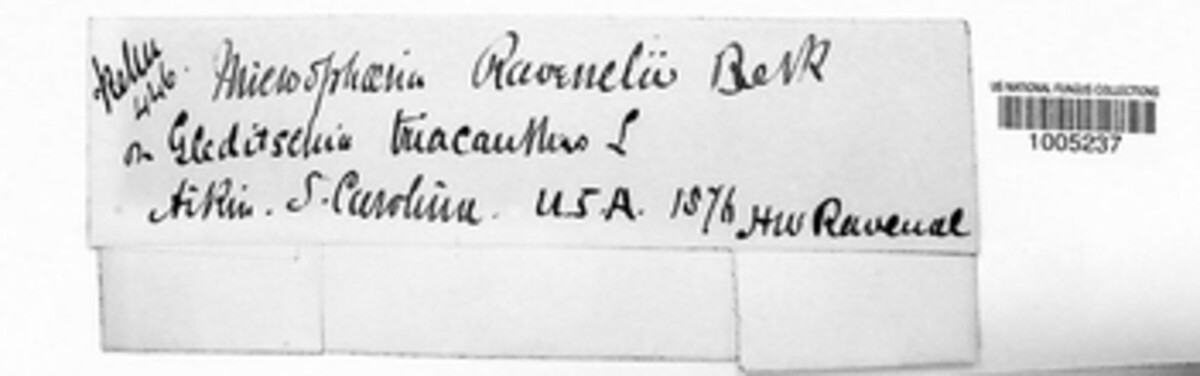 446. Microsphaeria Ravenelii Berk
on Gleditschia triacanthus L
Aikin. S. Carolina. U.S.A. 1876 HW Ravenal
US NATIONAL FUNGUS COLLECTIONS
1005237